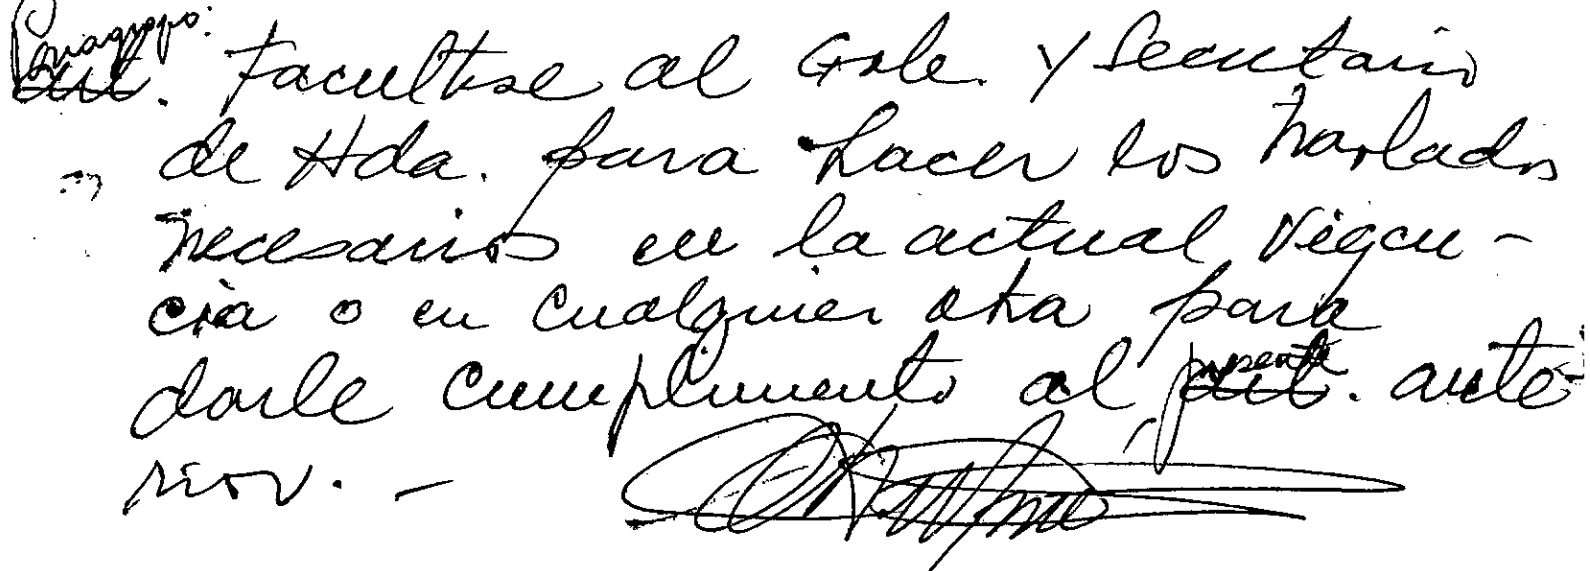 Paragrafo:
Art. Facultese al Gole. y Secretario
de Hda. para hacer los traslados
necesarios en la actual vigen-
cia o en cualquier otra para
darle cumplimento al presente art. ante-
rior. -